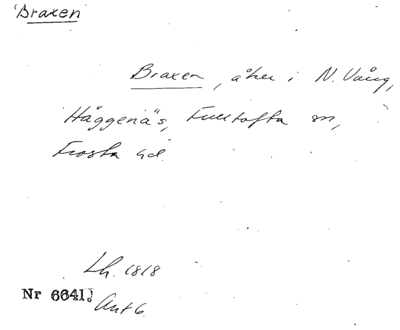 'Braxen'
Braxen, åker i N. Vång,
Häggenäs, Fulltofta sn,
Frosta hd.
Lh. 1818
Nr 6641.
Akt 6.